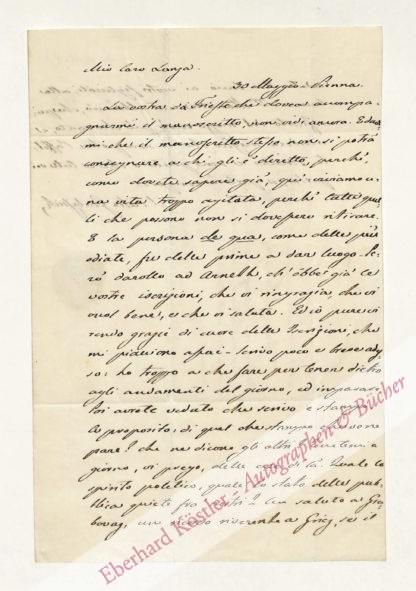 Mio caro Lanza.
30 Maggio - Vienna.
La vostra da Trieste che dovea accompa-
gnarmi il manoscritto, non vidi ancora. E
mi che il manoscritto stesso non si potrà
consegnare a chi gli è diretto, perchè,
come dovete sapere già, qui viviamo u-
na vita troppo agitata, perchè tutti quel-
li che possono non si dovessero ritirare.
E la persona de qua, come delle più
odiate, fu delle prime a dar luogo.
darollo ad Arneth, ch'ebbe già le
vostre iscrizioni, che vi ringrazia, che vi
vuol bene, e che vi saluta. Ed io pure vi
rendo grazie di cuore delle Iscrizioni, che
mi piacciono assai - scrivo poco e breve
so: ho troppo a che fare per tener dietro
agli andamenti del giorno, ed imparare.
Voi avrete veduto che scrivo e
A proposito: di quel che stampo che ve ne
pare? che ne dicono gli altri?
giorno, vi prego, delle cose di là. Quale lo
spirito politico, quale lo stato della pub-
blica quiete fra
un saluto a
un
riverente a
se il
Eberhard Köstler - Autographen & Bücher